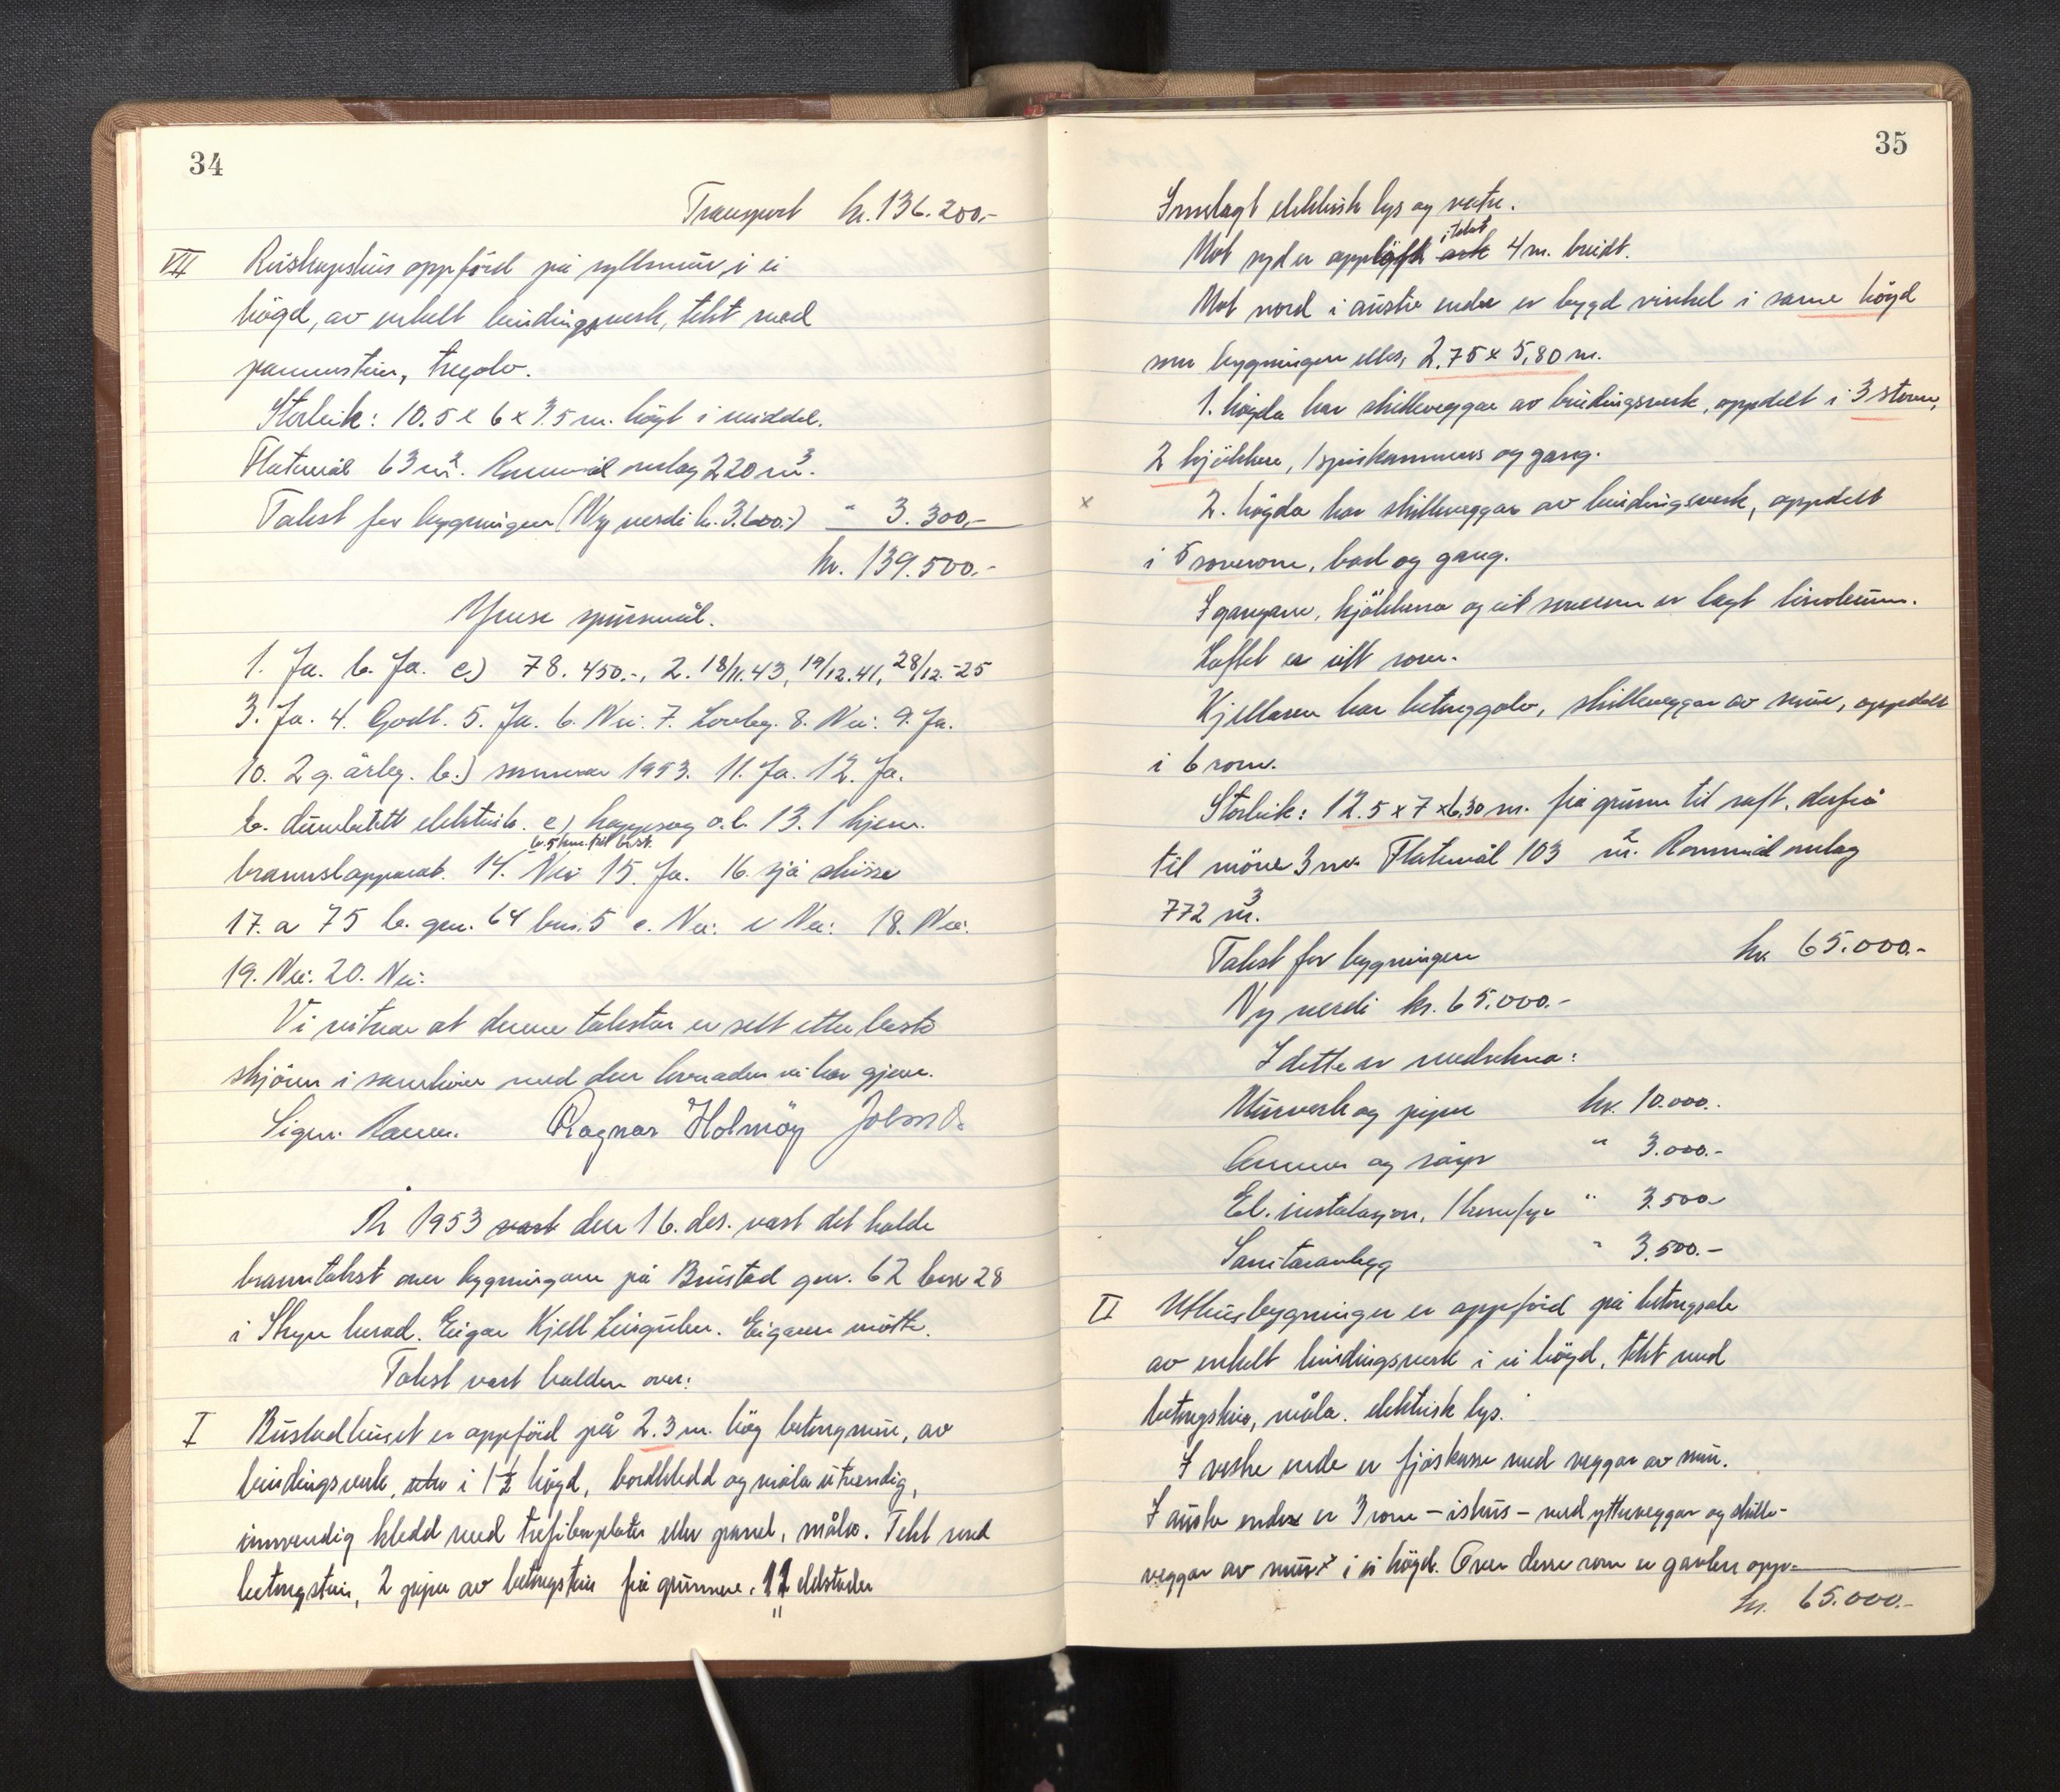 34
Transport kr. 136.200.-
VII Reiskapshus oppförd på syllmur, i ei
högd, av enkelt bindingsverk, tekt med
pannestein, tregolv.
Storleik: 10.5 x 6 x 3.5 m. högt i middel.
Flatemål 63 m². Rommål omlag 220 m³.
Takst for bygningen (Ny verdi kr. 3.600.-) " 3.300.-
kr. 139.500.-
Ymse spursmål.
1. Ja. b. Ja. c) 78.450.-, 2. 18/11.43, 19/12.41, 28/12.-25
3. Ja. 4. Godt. 5. Ja. 6. Nei. 7. Lovleg. 8. Nei. 9. Ja.
10. 2 g. årleg. b.) sommaren 1953. 11. Ja. 12. Ja.
b. elektrisk. c) kappsag o.l. 13. 1 hjem.
brannslapparat. 14. Nei 15. Ja. 16. sjå skisse
17. a 75 b. gnr. 64 bnr. 5 c. Nei. Nei. 18. Nei.
19. Nei. 20. Nei.
Vi vitnar at denne taksten er sett etter beste
skjön i samhöve med den lovnaden vi har gjeve.
Sign. Ragnar Holmöy
År 1953 vart den 16. des. vart det halde
branntakst over bygningane på Brustad gnr. 62 bnr 28
i Stryn herad. Eigar Kjell. Eigaren mötte.
Takst vart halden over:
I Bustadhuset er oppförd på 2.3 m. hög betongmur, av
bindingsverk, i 1½ högd, bordkledd og måla utvendig,
innvendig kledd med trefiberplater eller panel, måla. Tekt med
betongstein, 2 piper av betongstein frå grunnen. 11 eldstader
35
Innlagt elektrisk lys og vatn.
Mot syd er opplöft i taket ark 4 m. breidt.
Mot nord i austre ende er bygd vinkel i same högd
som bygningen elles, 2.75 x 5,80 m.
1. högda har skilleveggar av bindingsverk, oppdelt i 3 stover,
2 kjökken, 1 spiskammers og gang.
x 2. högda har skilleveggar av bindingsverk, oppdelt
i 5 soverom, bad og gang.
I gangane, kjökkena og eit soverom er lagt linoleum.
Loftet er eitt rom.
Kjellaren har betonggolv, skilleveggar av mur, oppdelt
i 6 rom.
Storleik: 12.5 x 7 x 6,30 m. frå grunn til raft, derfrå
til möne 3 m. Flatemål 103 m². Rommål omlag
772 m³.
Takst for bygningen kr. 65.000.-
Ny verdi kr. 65.000.-
I dette er medrekna:
Murverk og piper kr. 10.000.-
og " 3.000.-
El. instalasjon, 1 " 3.500
Sanitæranlegg " 3.500.-
II Uthusbygningen er oppförd på betongsåle
av enkelt bindingsverk i ei högd, tekt med
betongskiv, måla. elektrisk lys.
I vestre ende er fjöskasse med veggar av mur.
I austre ende er 3 rom – ishus – med ytterveggar og skille-
veggar av mur i ei högd. Over desse rom er gavlen opp-
kr. 65.000.-